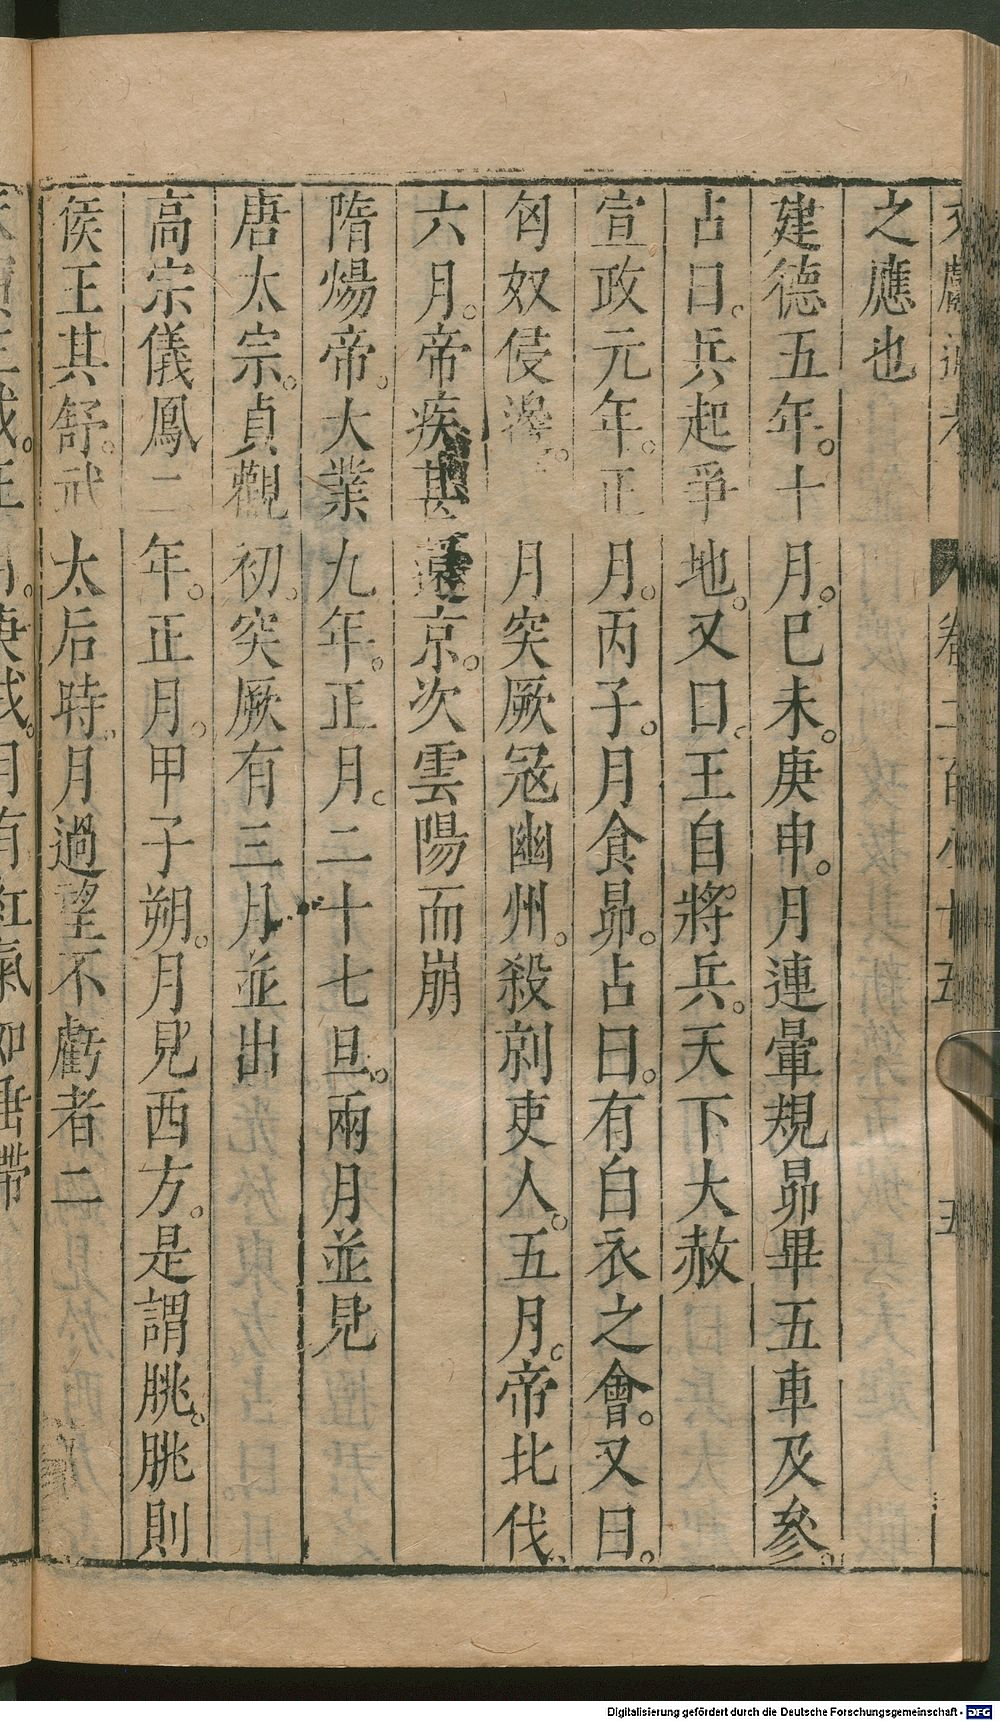 之應也
建德五年。十月。已未。庚申。月連暈規昴畢五車及參。
占曰。兵起爭地。又曰。王自將兵。天下大赦
宣政元年。正月。丙子。月食昴。占曰。有白衣之會。又曰。
匈奴侵邊。月突厥冦幽州。殺剠吏人。五月。帝北伐。
六月。帝疾甚還京。次雲陽而崩
隋煬帝。大業九年。正月。二十七旦。兩月並見
唐太宗。貞觀初。突厥有三月並出
高宗儀鳳二年。正月。甲子朔。月見西方。是謂朓。朓則
侯王其舒。武太后時。月過望不虧者二
Digitalisierung gefördert durch die Deutsche Forschungsgemeinschaft - DFG